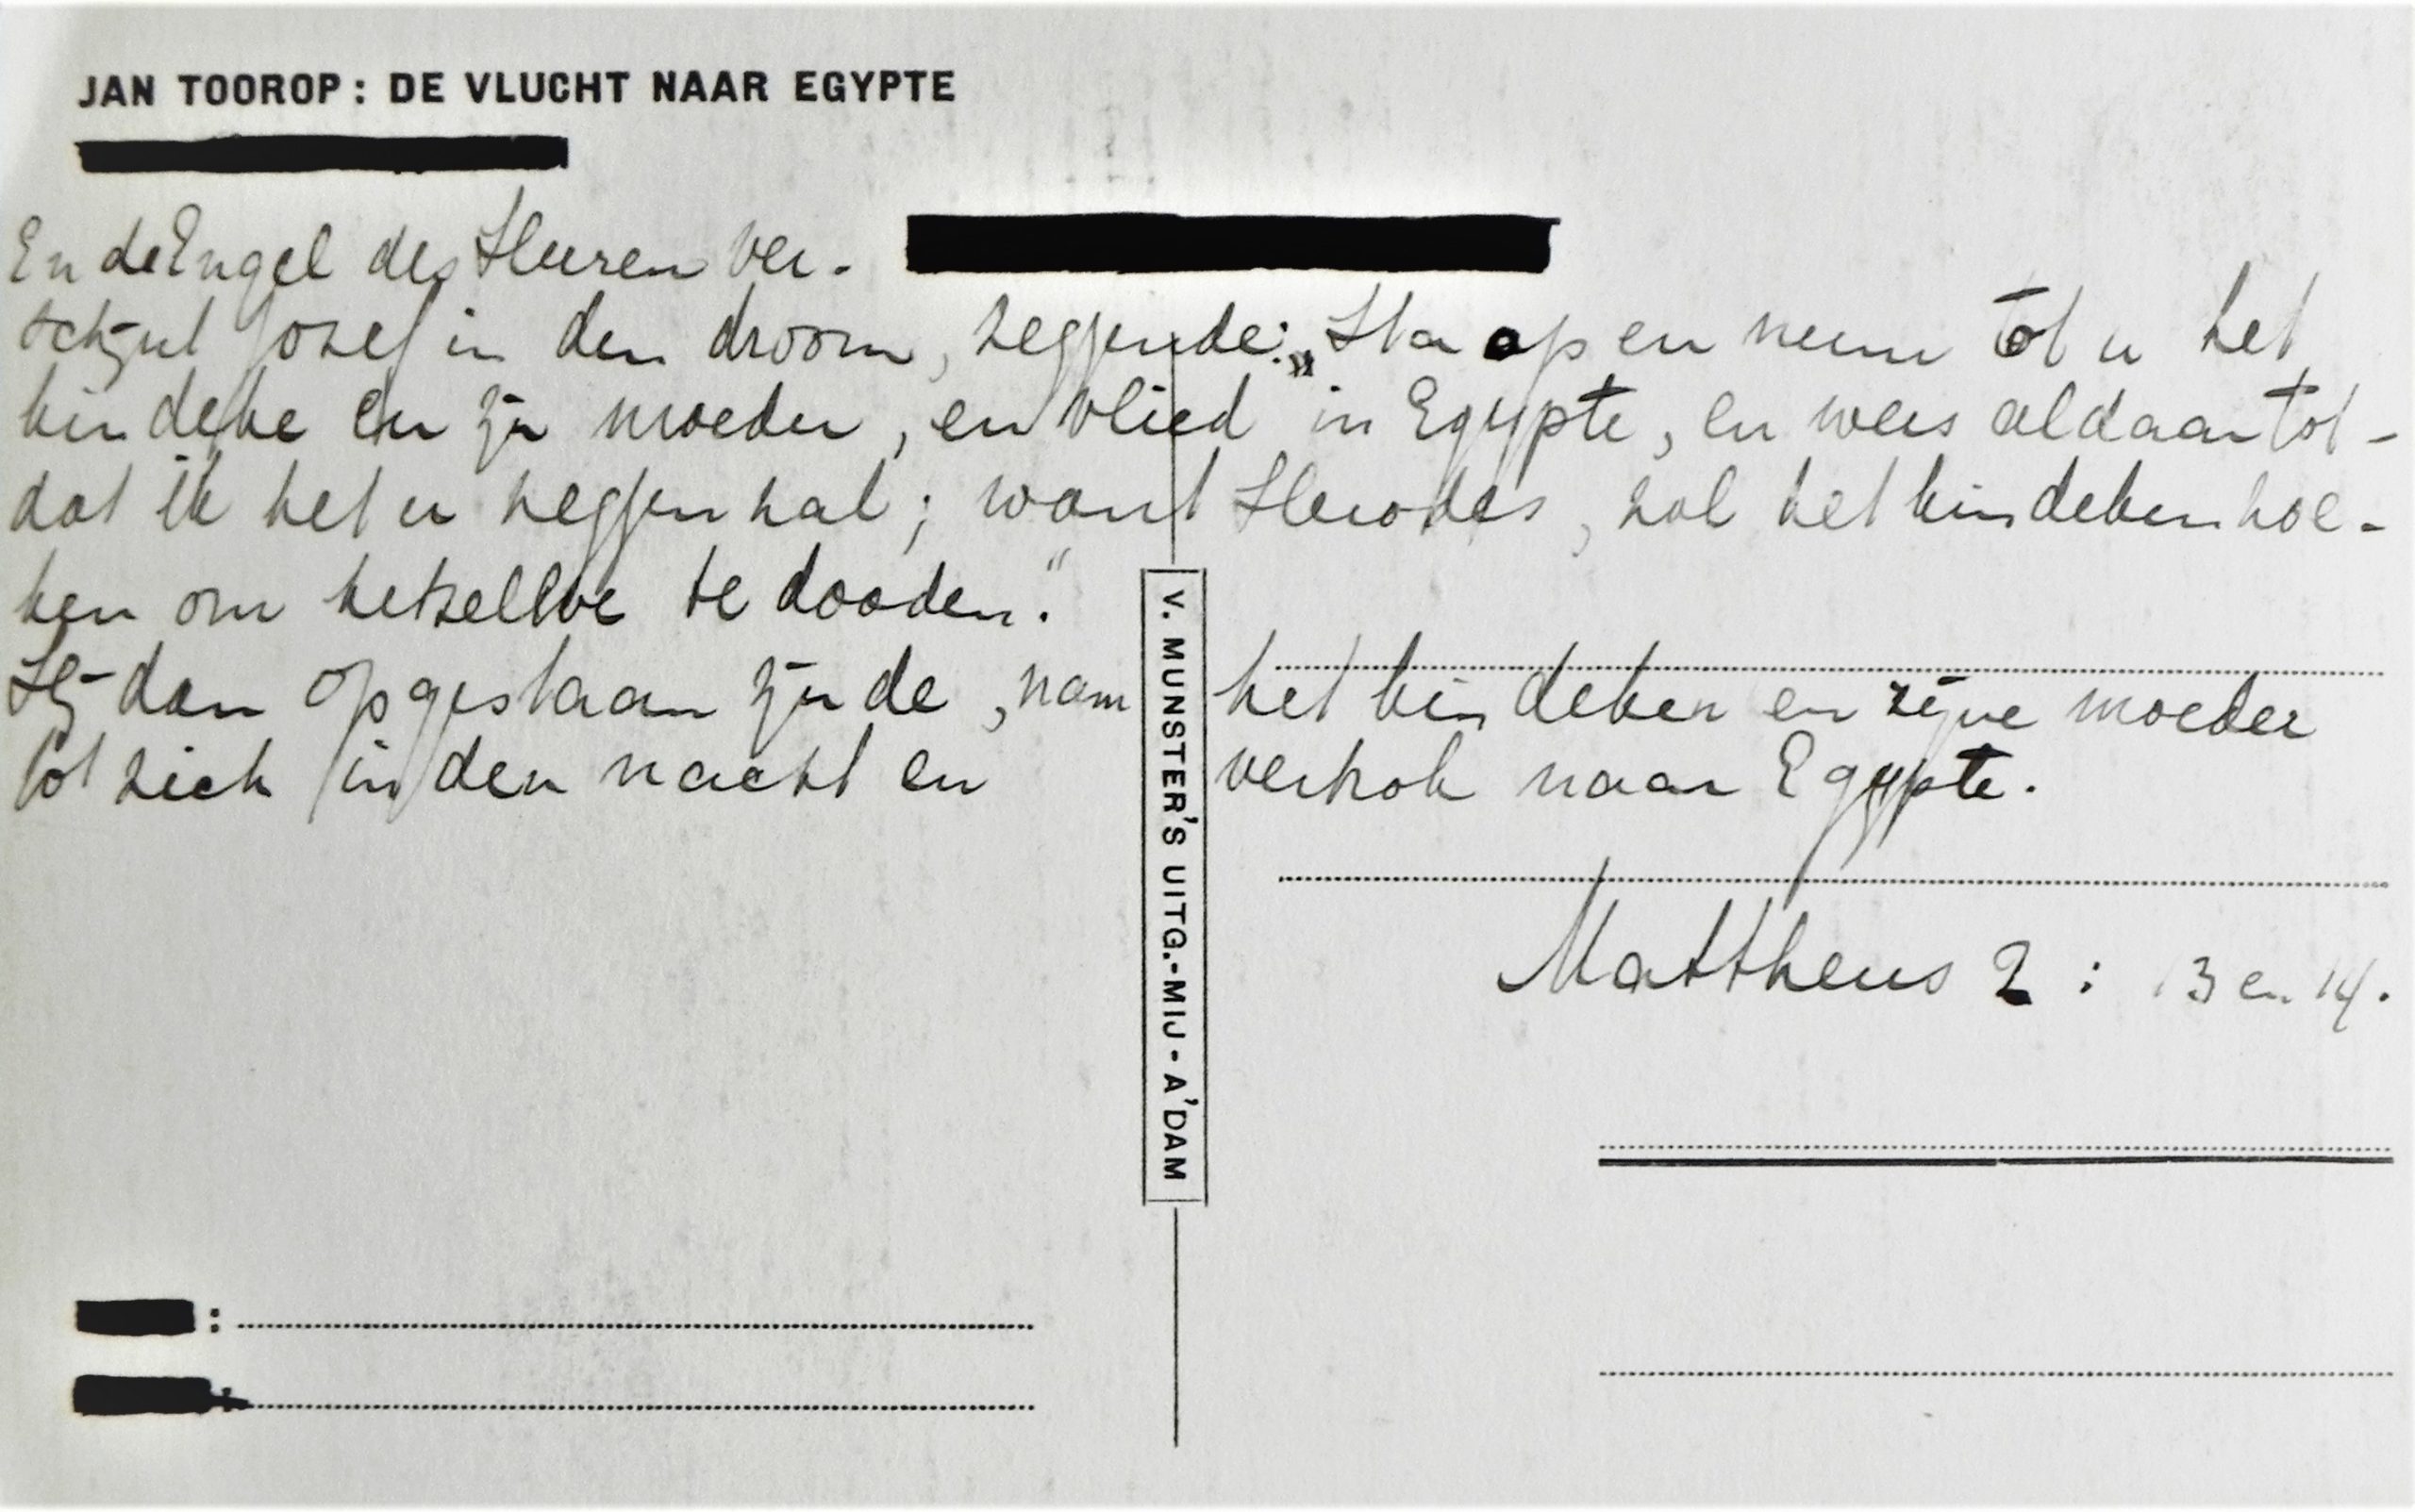 JAN TOOROP: DE VLUCHT NAAR EGYPTE
En de Engel des Heeren ver-
schijnt Josef in den droom, zeggende: „Sta op en neem tot u het
kindeke en zijn moeder, en vlied in Egypte, en wees aldaar tot-
dat ik het u zeggen zal; want Herodes, zal het kindeken zoe-
ken om hetzellve te dooden."
Hij dan opgestaan zijnde, nam het kindeken en zijne moeder
tot zich in den nacht en vertrok naar Egypte.
Mattheus 2: 13 en 14.
V. MUNSTER'S UITG.-MIJ • A'DAM